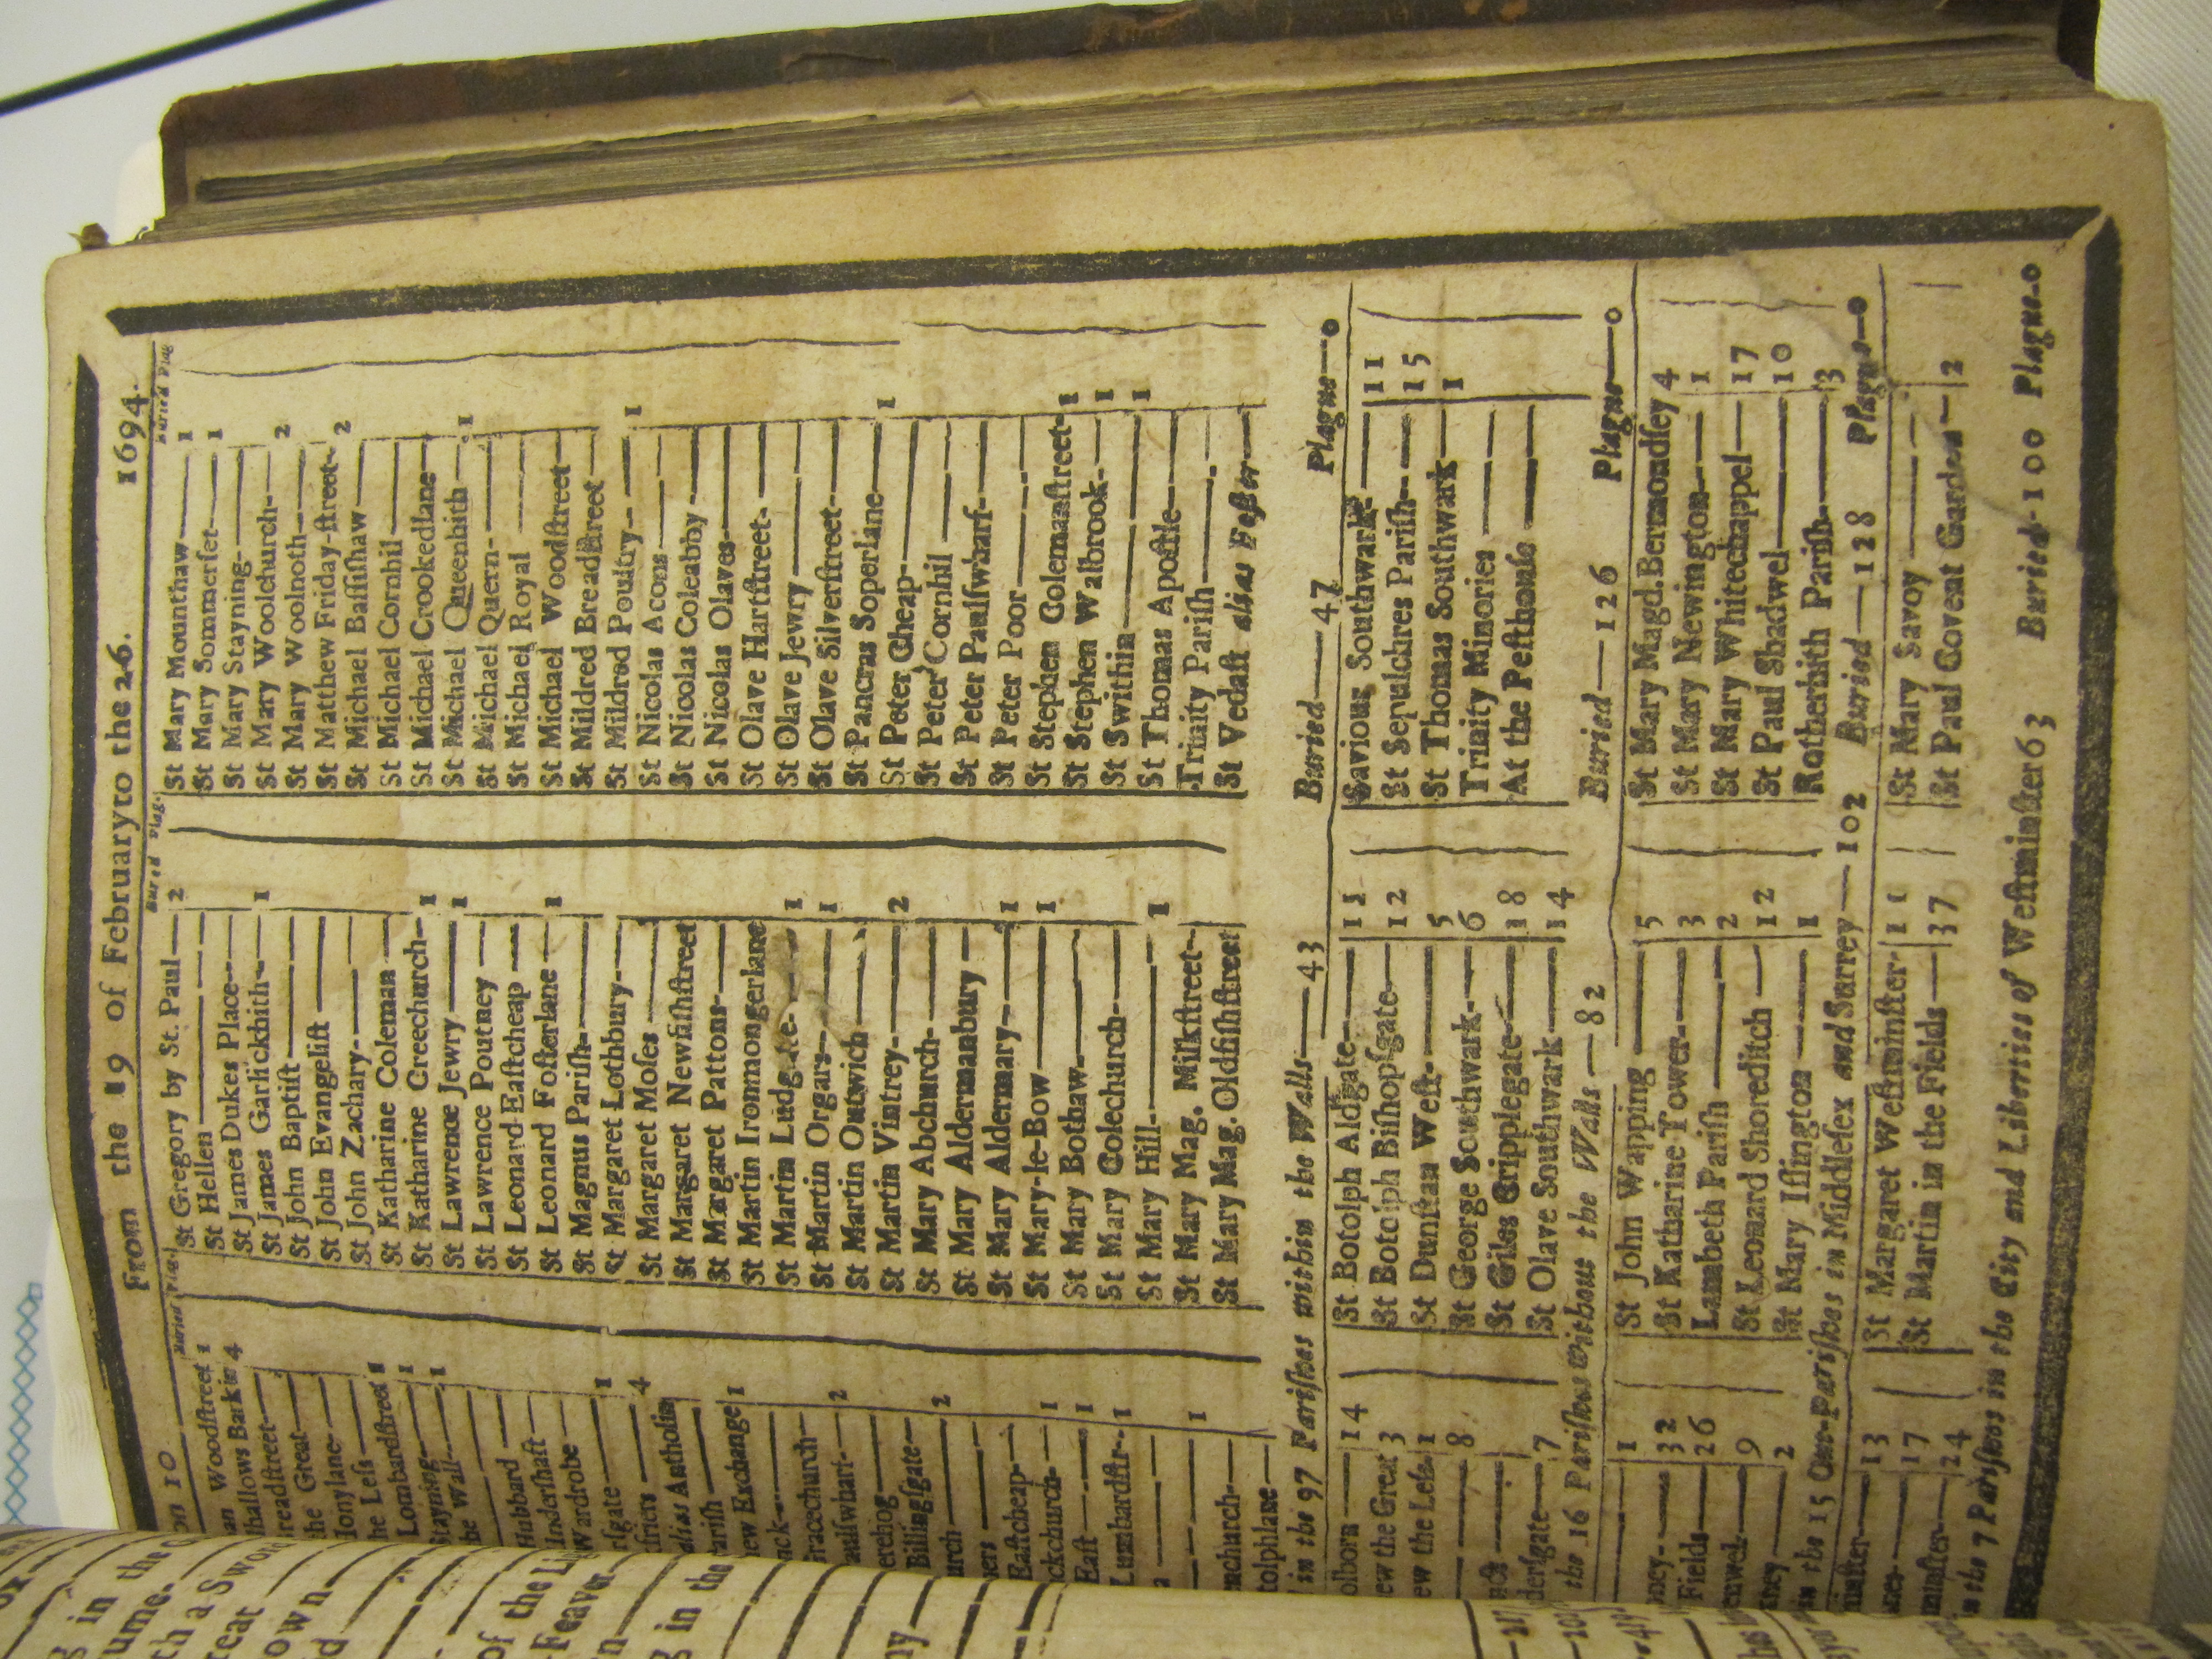 From the 19 of February to the 26. 1694.
on 10
Buried Plag
Woodſtreet 1
hallows Barkin 4
readſtreet
he Great
Honylane
he Leſs
Lombardſtreet 1
Stayning 1
he Wall 1
Hubbard
Underſhaft
Wardrobe
rſgate 1
friers 4
alias Antholin
Pariſh
ew Exchange 1
Gracechurch
aulſwharf 2
erehog
Billingſgate
urch 2
ners
Eaſtcheap
ckchurch 1
Eaſt 1
Lumbardſtr. 1
1
nchurch
tolphlane
Buried Plag.
St Gregory by St. Paul 2
St Hellen
St James Dukes Place
St James Garlickhith 1
St John Baptiſt
St John Evangeliſt
St John Zachary
St Katharine Coleman
St Katharine Creechurch 1
St Lawrence Jewry 1
St Lawrence Poutney
St Leonard Eaſtcheap
St Leonard Foſterlane 1
St Magnus Pariſh
St Margaret Lothbury
St Margaret Moſes
St Margaret Newfiſhſtreet
St Margaret Pattons
St Martin Ironmongerlane
St Martin Ludgate 1
St Martin Orgars 1
St Martin Outwich
St Martin Vintrey 2
St Mary Abchurch
St Mary Aldermanbury
St Mary Aldermary 1
St Mary-le-Bow 1
St Mary Bothaw
St Mary Colechurch
St Mary Hill 1
St Mary Mag. Milkſtreet
St Mary Mag. Oldfiſhſtreet
Buried Plag
St Mary Mounthaw 1
St Mary Sommerſet 1
St Mary Stayning
St Mary Woolchurch 2
St Mary Woolnoth
St Matthew Friday-ſtreet 2
St Michael Baſſiſhaw
St Michael Cornhil
St Michael Crookedlane
St Michael Queenhith 1
St Michael Quern
St Michael Royal
St Michael Woodſtreet
St Mildred Breadſtreet
St Mildred Poultry 1
St Nicolas Acons
St Nicolas Coleabby
St Nicolas Olaves
St Olave Hartſtreet
St Olave Jewry
St Olave Silverſtreet
St Pancras Soperlane
St Peter Cheap 1
St Peter Cornhil
St Peter Paulſwharf
St Peter Poor
St Stephen Colemanſtreet 1
St Stephen Walbrook 1
St Swithin 1
St Thomas Apoſtle
Trinity Pariſh
St Vedaſt alias Foſter
in the 97 Pariſhes within the Walls—43 Buried—47 Plague—0
olborn 14
ew the Great 3
ew the Leſs 1
8
derſgate 7
St Botolph Aldgate 11
St Botolph Biſhopſgate 12
St Dunſtan Weſt 5
St George Southwark 6
St Giles Cripplegate 18
St Olave Southwark 14
Saviours Southwark 11
St Sepulchres Pariſh 15
St Thomas Southwark 1
Trinity Minories
At the Peſthouſe
the 16 Pariſhes without the Walls—82 Buried—126 Plague—0
1
ney 32
Fields 26
enwel 9
ney 2
St John Wapping 5
St Katharine Tower 3
Lambeth Pariſh 2
St Leonard Shoreditch 12
St Mary Iſlington 1
St Mary Magd. Bermondſey 4
St Mary Newington 1
St Mary Whitechappel 17
St Paul Shadwel 10
Rotherhith Pariſh 3
in the 15 Out-Pariſhes in Middleſex and Surrey—102 Buried—128 Plague—0
13
17
24
St Margaret Weſtminſter 11
St Martin in the Fields 37
St Mary Savoy
St Paul Covent Garden 2
in the 7 Pariſhes in the City and Liberties of Weſtminſter 63 Buried-100 Plague-0
in the
ume.
th a Sword
reat
own
of the
Feaver
in the